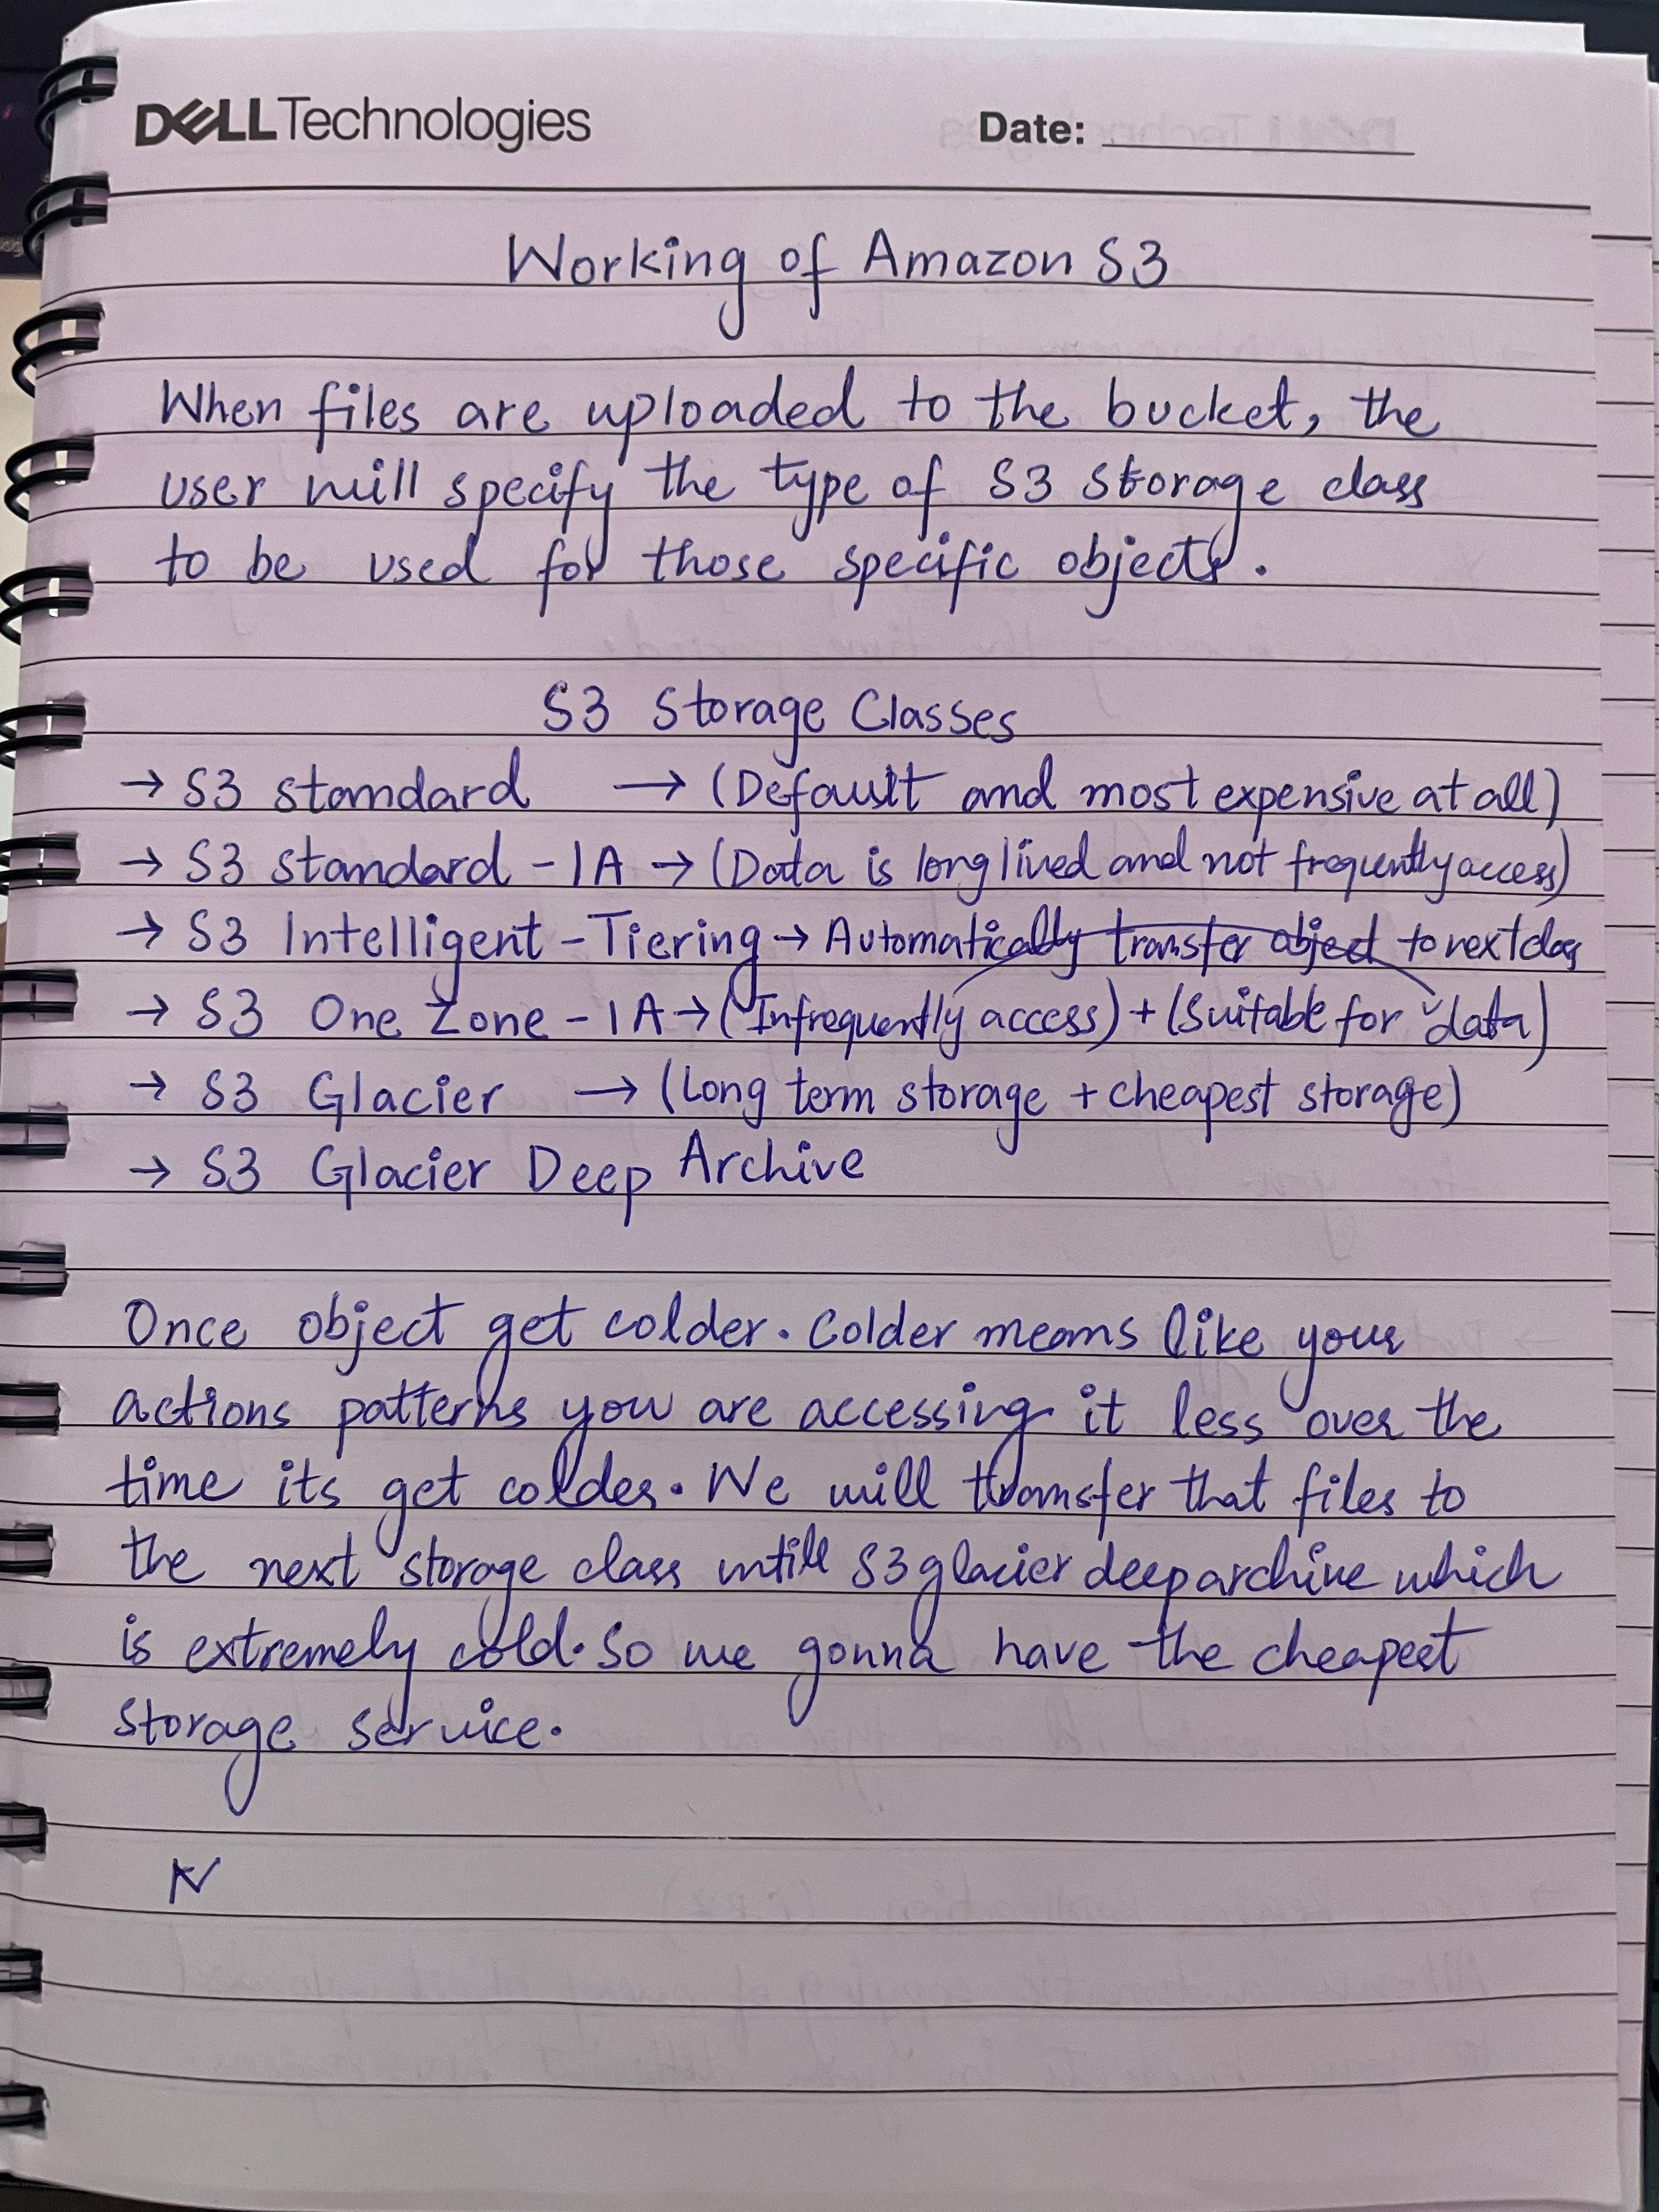 DELL Technologies
Date:
Working of Amazon S3
When files are uploaded to the bucket, the
user will specify the type of S3 storage class
to be used for those specific objects.
S3 Storage Classes
→ S3 standard → (Default and most expensive at all)
→ S3 standard - IA → (Data is long lived and not frequently access)
→ S3 Intelligent - Tiering → Automatically transfer object to next class
→ S3 One Zone - IA → (Infrequently access) + (Suitable for data)
→ S3 Glacier → (Long term storage + cheapest storage)
→ S3 Glacier Deep Archive
Once object get colder. Colder means like your
actions patterns you are accessing it less over the
time its get colder. We will transfer that files to
the next storage class untill S3 glacier deep archive which
is extremely cold. So we gonna have the cheapest
storage service.
N